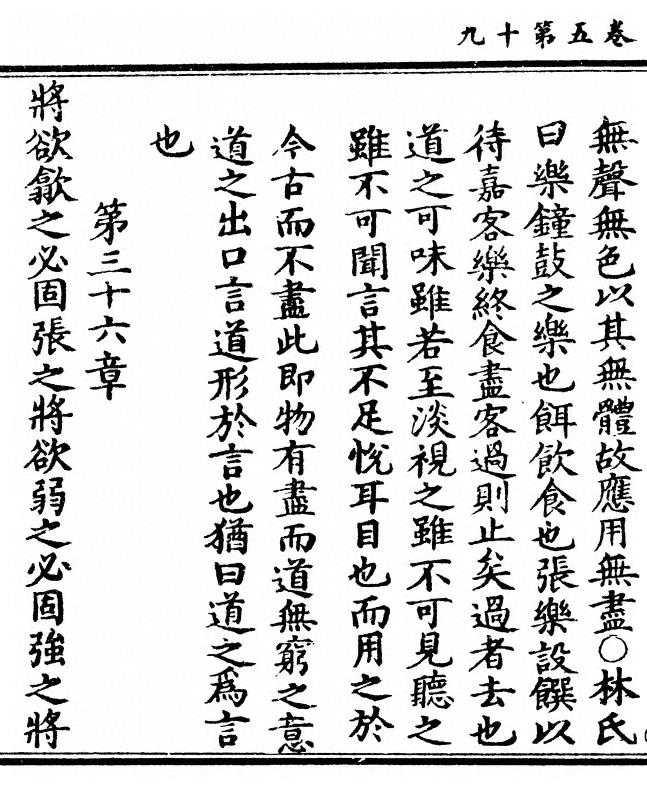 卷五第十九
無聲無色以其無體故應用無盡○林氏
曰樂鐘鼓之樂也餌飲食也張樂設饌以
待嘉客樂終食盡客過則止矣過者去也
道之可味雖若至淡視之雖不可見聽之
雖不可聞言其不足悅耳目也而用之於
今古而不盡此即物有盡而道無窮之意
道之出口言道形於言也猶曰道之爲言
也
第三十六章
將欲歙之必固張之將欲弱之必固強之將